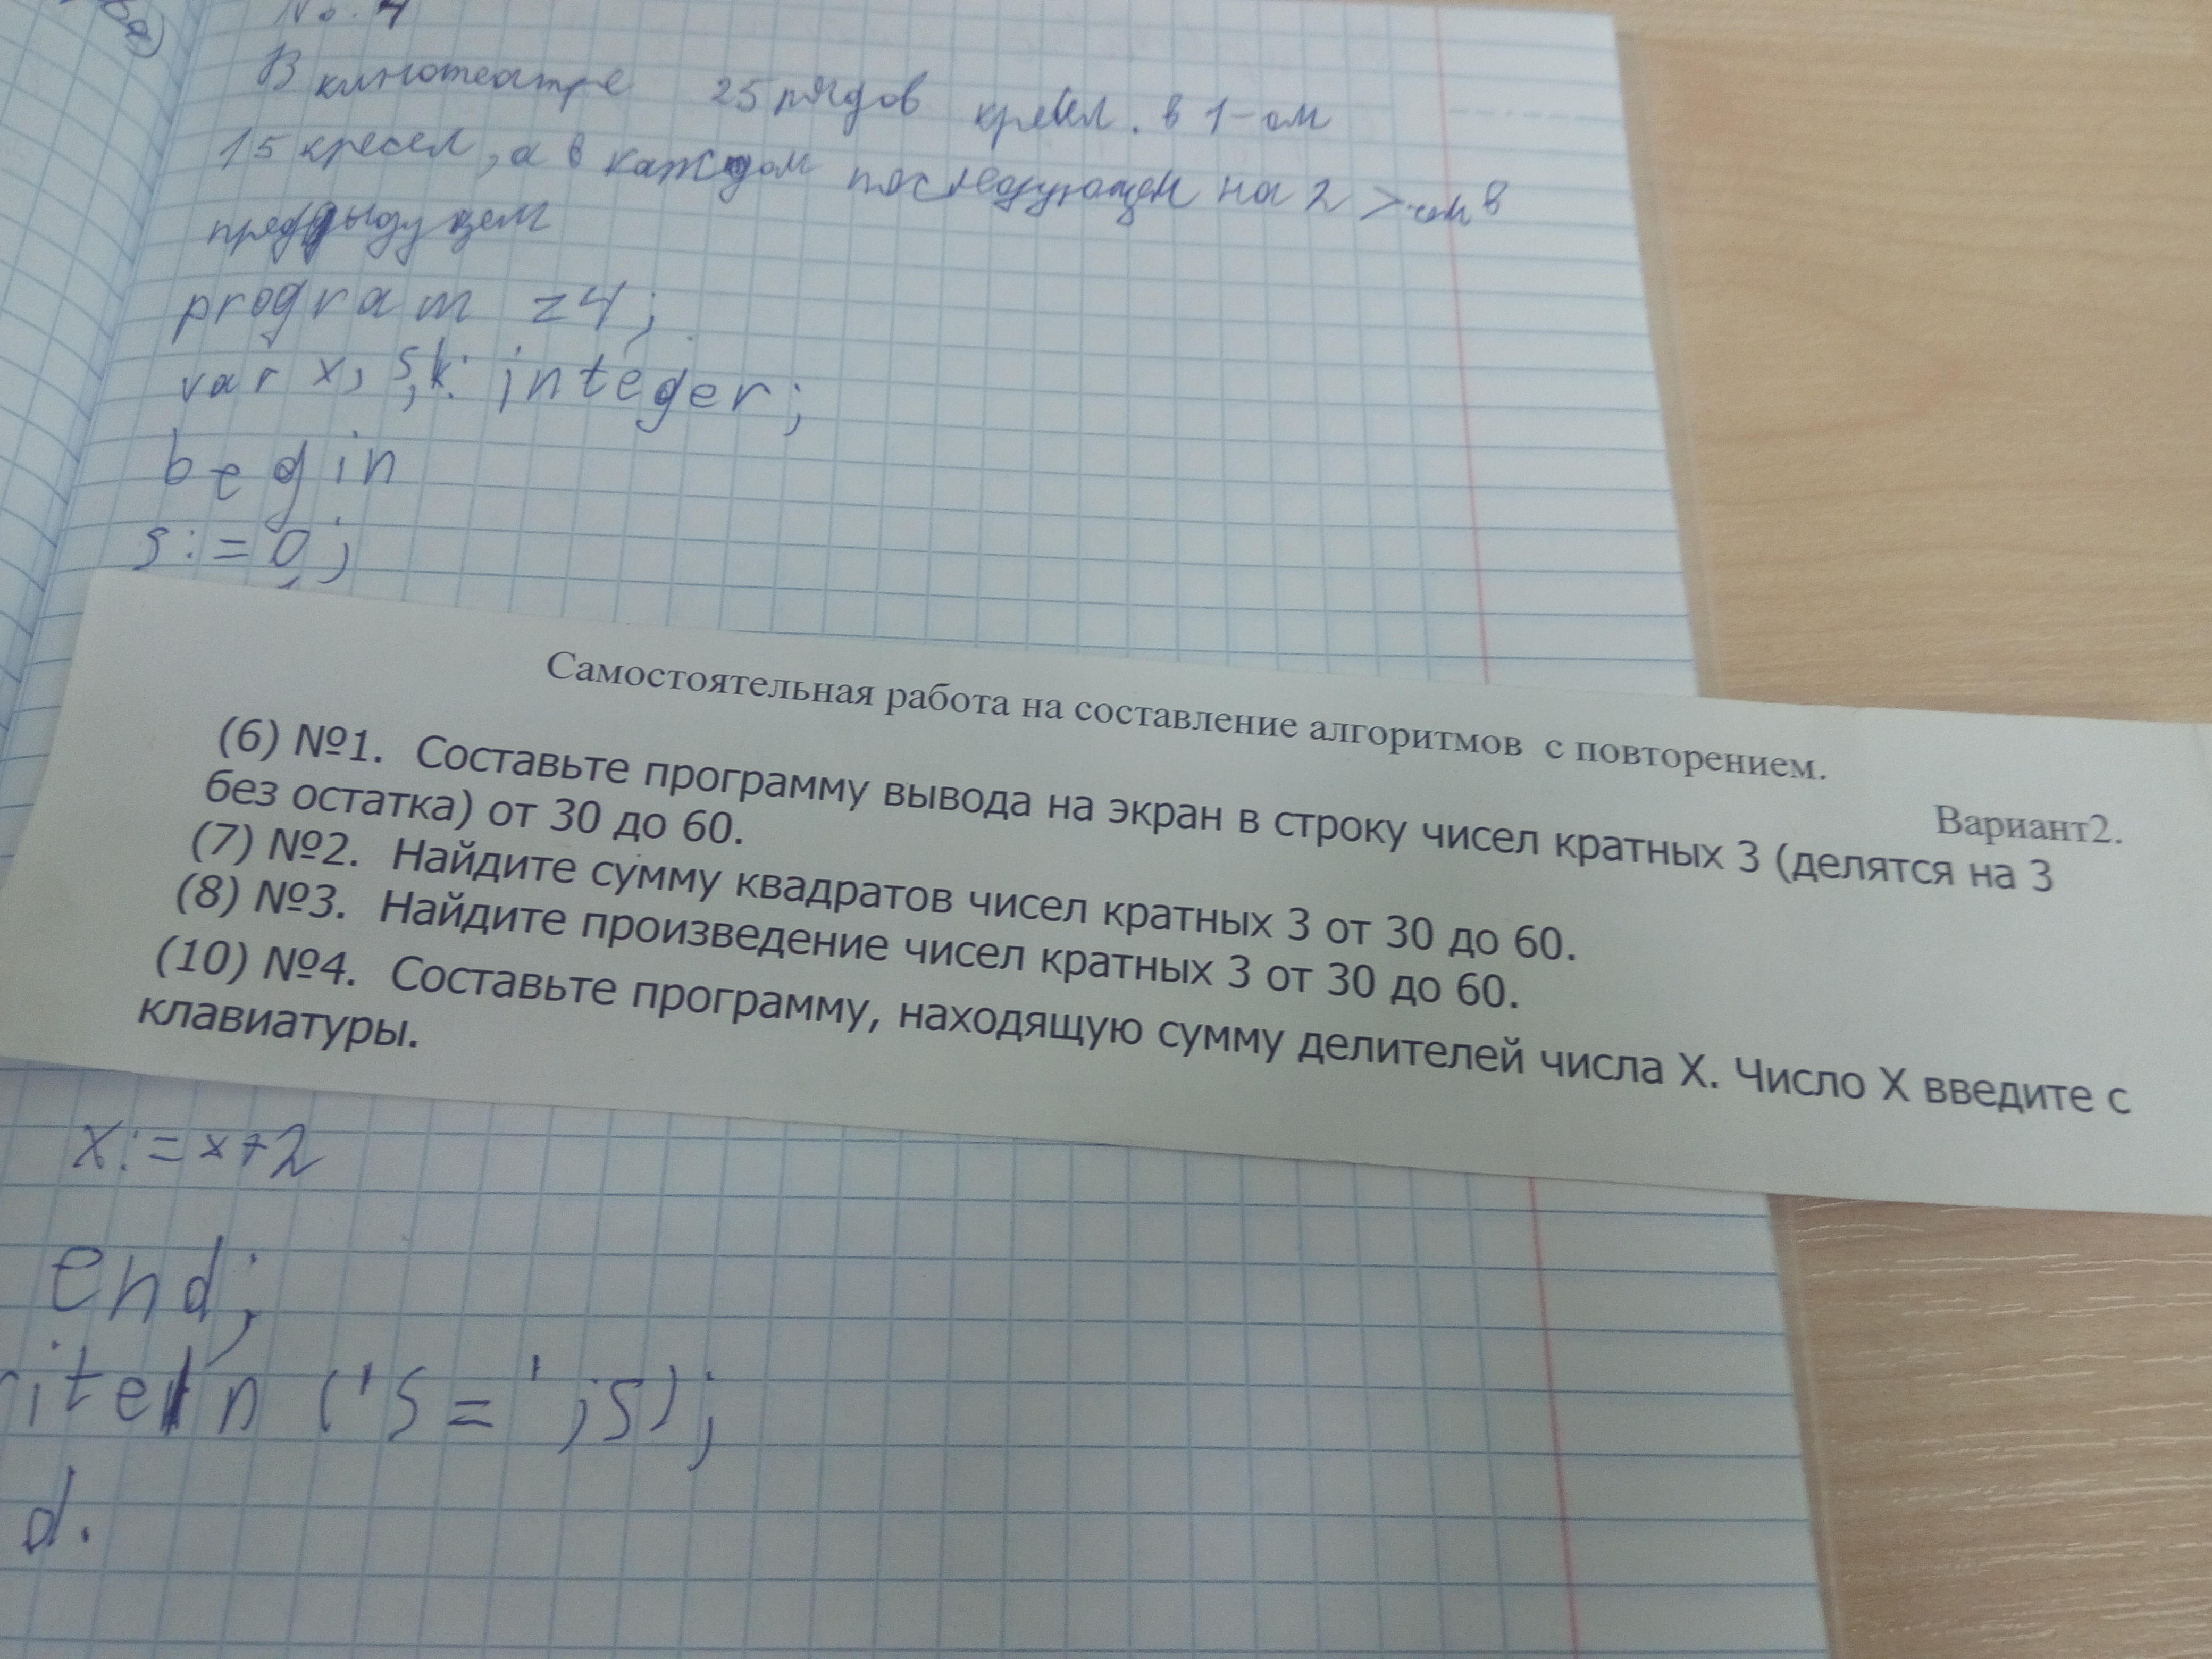 No. 4
В кинотеатре 25 рядов кресел. в 1-ом
15 кресел, а в каждом последующем на 2 > чем в
предыдущем
program z4;
var x, s, k: integer;
begin
s:=0;
Самостоятельная работа на составление алгоритмов с повторением.
Вариант2.
(6) №1. Составьте программу вывода на экран в строку чисел кратных 3 (делятся на 3
без остатка) от 30 до 60.
(7) №2. Найдите сумму квадратов чисел кратных 3 от 30 до 60.
(8) №3. Найдите произведение чисел кратных 3 от 30 до 60.
(10) №4. Составьте программу, находящую сумму делителей числа X. Число X введите с
клавиатуры.
x:=x+2
end;
riteln ('s=';s);
d.